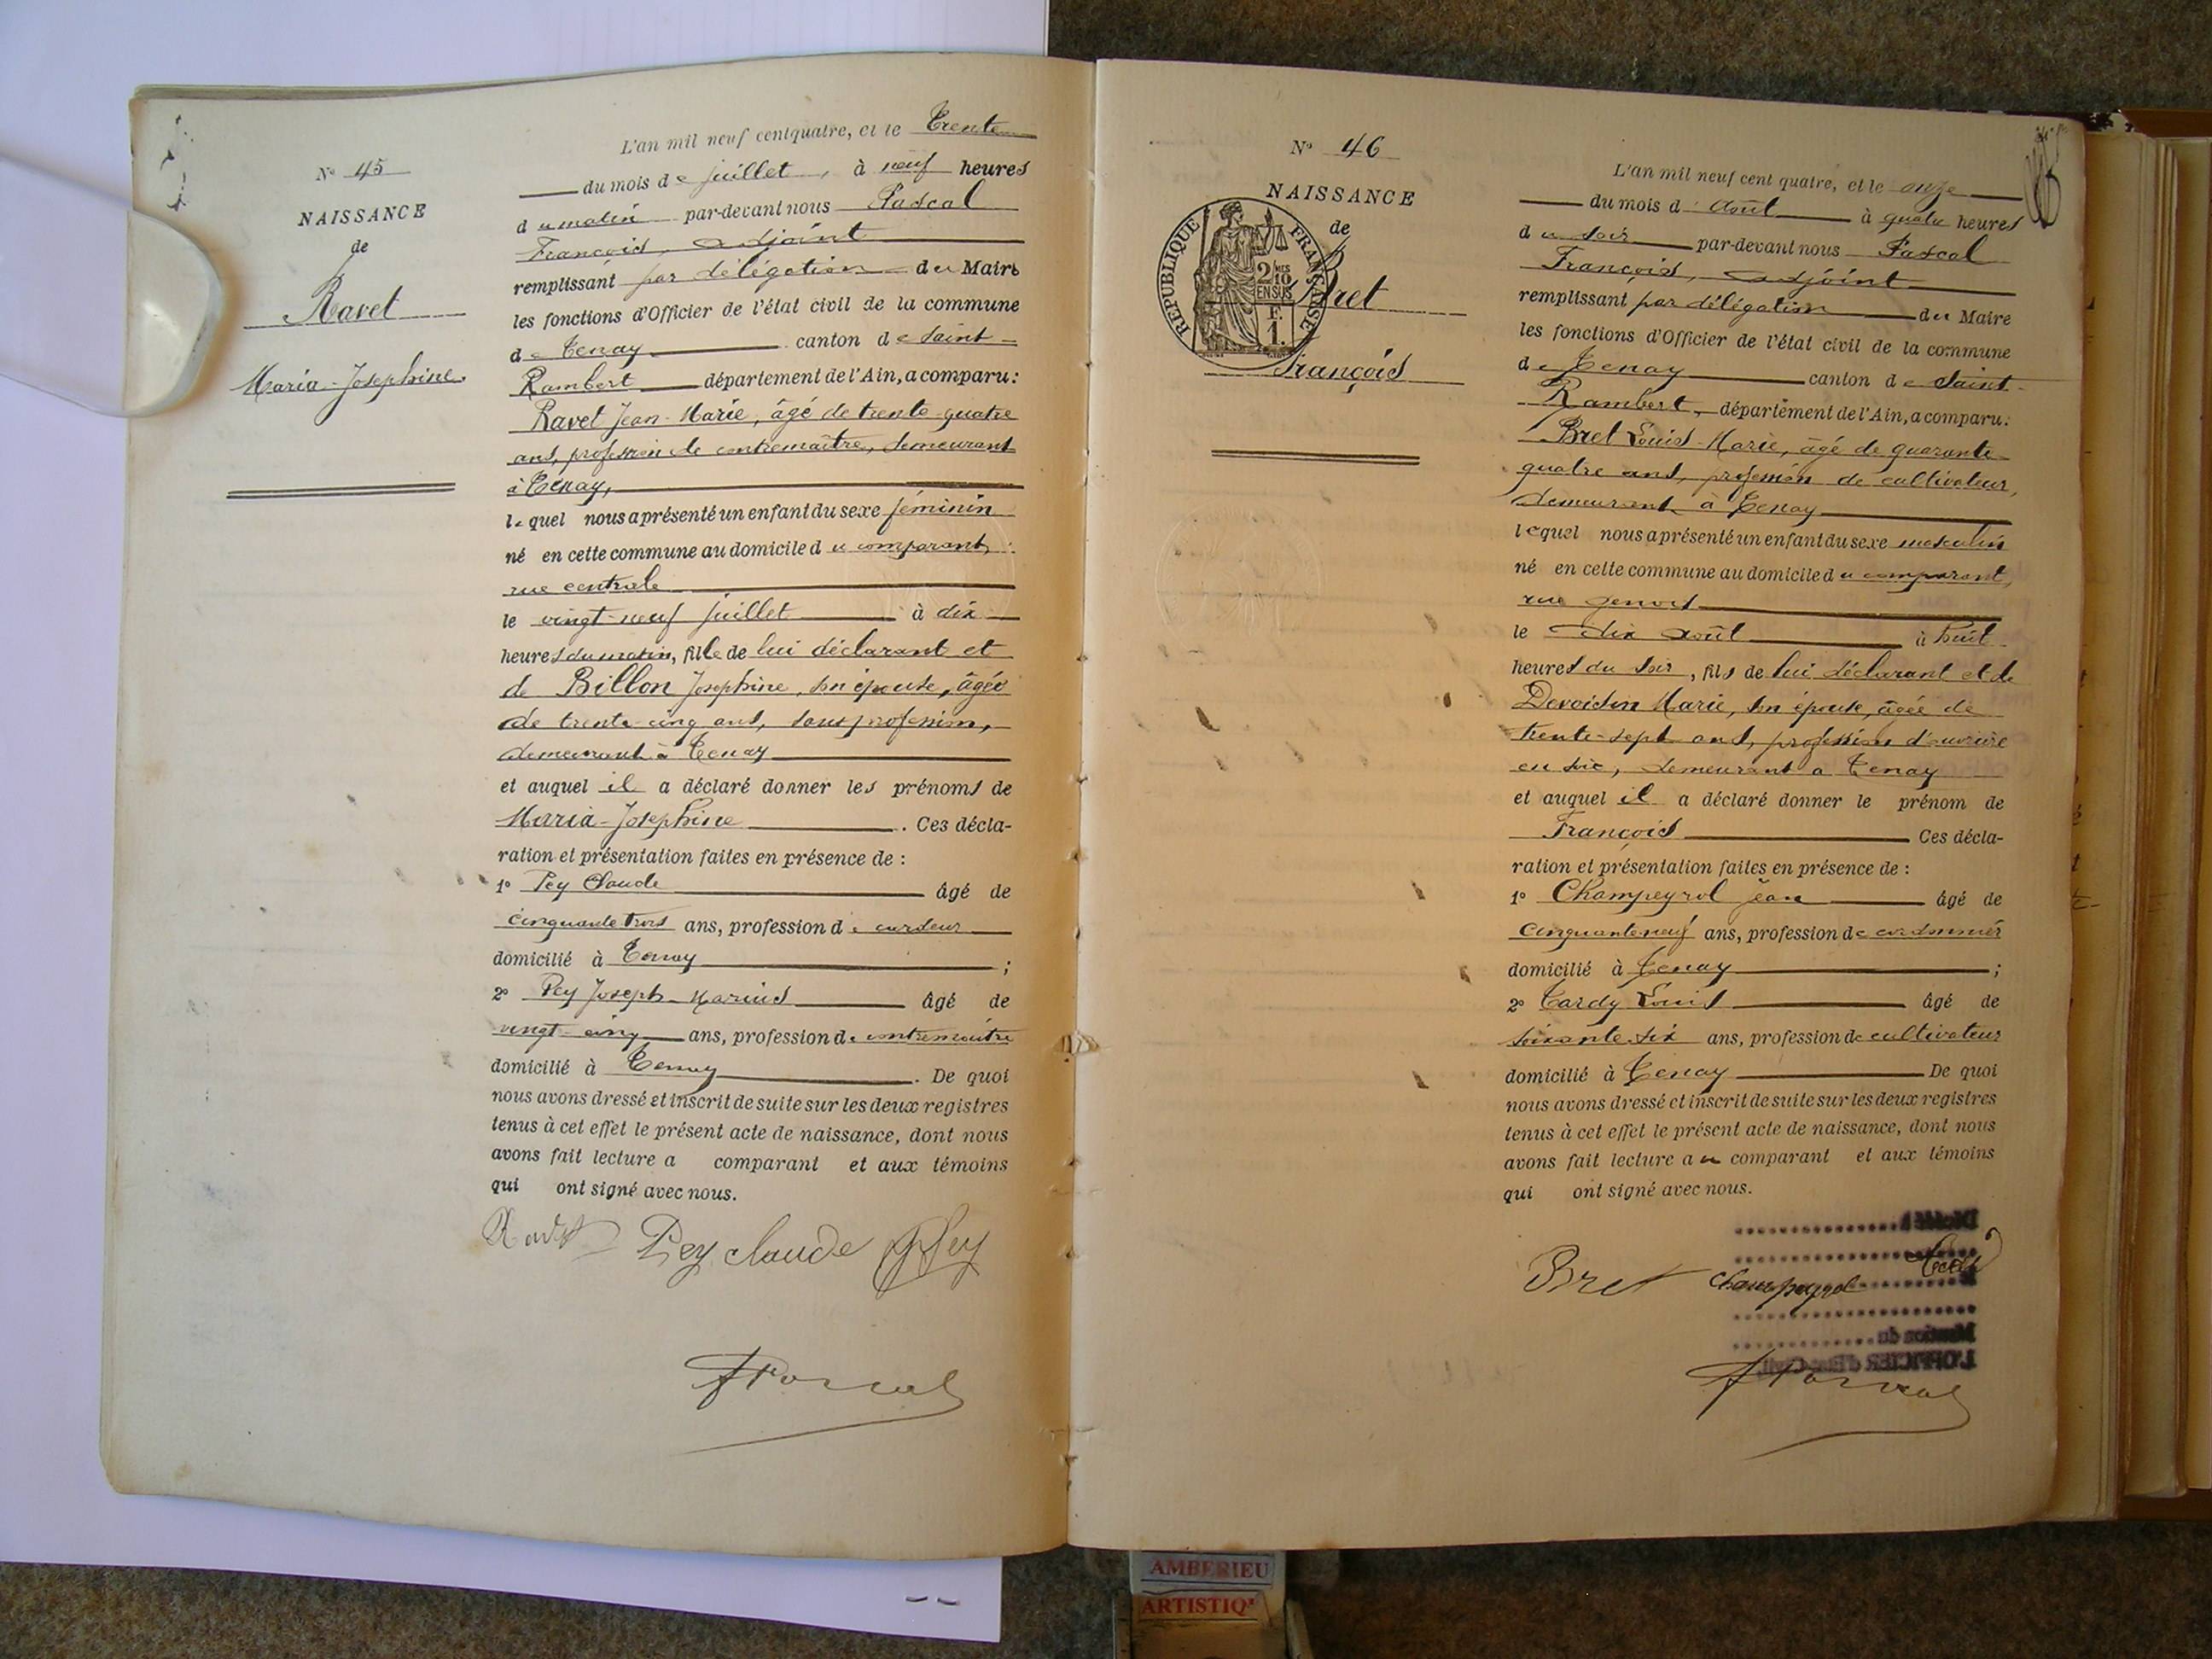 N° 45
NAISSANCE
de
Ravet
Maria-Josephine.
L'an mil neuf cent quatre, et le Trente
du mois de juillet, à neuf heures
du matin par-devant nous Pascal
François, adjoint
remplissant par délégation du Maire
les fonctions d'Officier de l'état civil de la commune
de Tenay canton de Saint-
Rambert département de l'Ain, a comparu:
Ravet Jean-Marie, âgé de trente-quatre
ans, profession de contremaître, demeurant
à Tenay,
lequel nous a présenté un enfant du sexe féminin
né en cette commune au domicile du comparant,
rue centrale
le vingt-neuf juillet à dix
heures du matin, fille de lui déclarant et
de Billon Josephine, son épouse, âgée
de trente-cinq ans, sans profession,
demeurant à Tenay
et auquel il a déclaré donner les prénoms de
Maria-Josephine. Ces décla-
ration et présentation faites en présence de :
1° Pey Claude âgé de
cinquante trois ans, profession de cardeur
domicilié à Tenay ;
2° Pey Joseph-Marius âgé de
vingt-cinq ans, profession de contremaître
domicilié à Tenay. De quoi
nous avons dressé et inscrit de suite sur les deux registres
tenus à cet effet le présent acte de naissance, dont nous
avons fait lecture a comparant et aux témoins
qui ont signé avec nous.
Ravet Pey claude JPey
FPascal
N° 46
NAISSANCE
de
Bret
François
RÉPUBLIQUE FRANÇAISE
2/10 MES
EN SUS
F.
1.
L'an mil neuf cent quatre, et le onze
du mois d'Août à quatre heures
du soir par-devant nous Pascal
François, adjoint
remplissant par délégation du Maire
les fonctions d'Officier de l'état civil de la commune
de Tenay canton de Saint-
Rambert, département de l'Ain, a comparu:
Bret Louis-Marie, âgé de quarante-
quatre ans, profession de cultivateur,
demeurant à Tenay
lequel nous a présenté un enfant du sexe masculin
né en cette commune au domicile du comparant,
rue
le dix août à huit
heures du soir, fils de lui déclarant et de
Devoidin Marie, son épouse, âgée de
trente-sept ans, profession d'ouvrière
en soie, demeurant à Tenay
et auquel il a déclaré donner le prénom de
François Ces décla-
ration et présentation faites en présence de :
1° Champeyrol jean âgé de
cinquante neuf ans, profession de cordonnier
domicilié à Tenay ;
2° Tardy Louis âgé de
soixante-six ans, profession de cultivateur
domicilié à Tenay De quoi
nous avons dressé et inscrit de suite sur les deux registres
tenus à cet effet le présent acte de naissance, dont nous
avons fait lecture au comparant et aux témoins
qui ont signé avec nous.
Décédé à
Bret Champeyrol
Mention du
L'OFFICIER d'Etat Civil
FPascal
AMBERIEU
ARTISTIQ